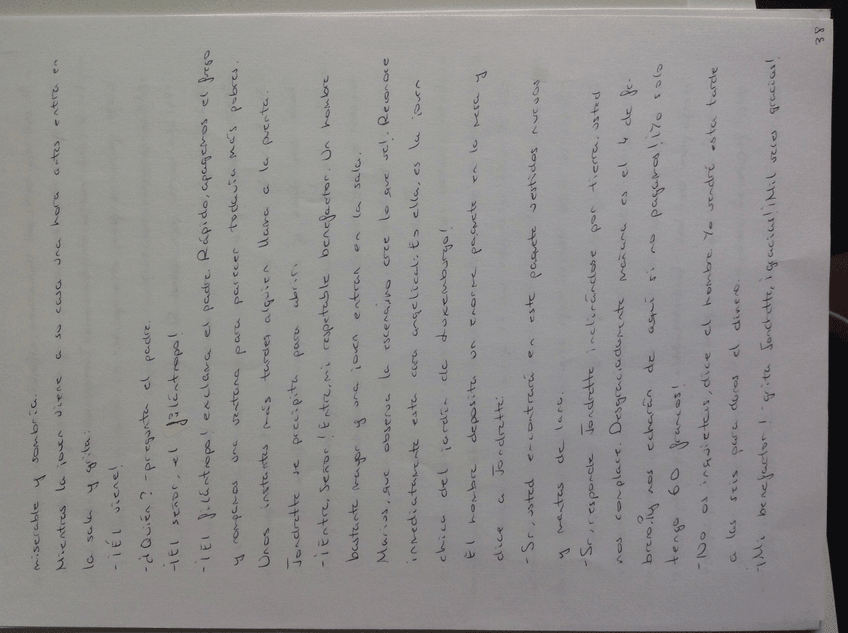 miserable y sombría.
Mientras la joven viene a su casa una hora antes entra en
la sala y grita:
-¡Él viene!
-¿Quién? - pregunta el padre.
-¡El señor, el filántropo!
-¡El filántropo! exclama el padre. Rápido, apagemos el fuego
y rompamos una ventana para parecer todavía más pobres.
Unos instantes más tardes alguien llama a la puerta.
Jondrette se precipita para abrir.
-¡Entre, señor! Entre, mi respetable benefactor. Un hombre
bastante mayor y una joven entran en la sala.
Marius, que observa la escena, no cree lo que ve!. Reconoce
inmediatamente esta cara angelical. Es ella, es la joven
chica del jardín de Luxemburgo!
El hombre deposita un enorme paquete en la mesa y
dice a Jondrette:
-Sr, usted encontrará en este paquete vestidos nuevos
y mantas de lana.
-Sr, responde Jondrette inclinándose por tierra, usted
nos complace. Desgraciadamente mañana es el 4 de fe-
brero, ¡y nos echarán de aquí si no pagamos! ¡Yo solo
tengo 60 francos!
-No os inquieteis, dice el hombre Yo vendré esta tarde
a las seis para daros el dinero.
-¡Mi benefactor! - grita Jondrette, ¡gracias! ¡Mil veces gracias!
38